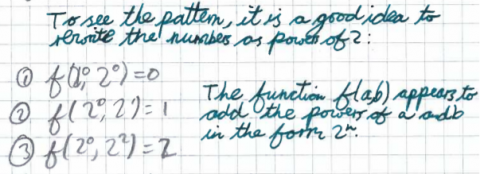 To see the pattern, it is a good idea to
rewrite the numbers as powers of 2:
① f(1⁰, 2⁰)=0
② f(2⁰, 2¹)=1
③ f(2⁰, 2²)=2
The function f(a,b) appears to
add the powers of a and b
in the form 2ⁿ.